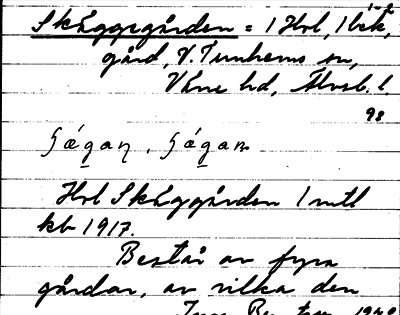 Skåggegården = 1 Hrl, 1 bek,
gård, V. Tunhems sn,
Väne hd, Älvsb. l
98
Hrl Skåggården 1 mtl
kb 1917.
Består av fyra
gårdar, av vilka den